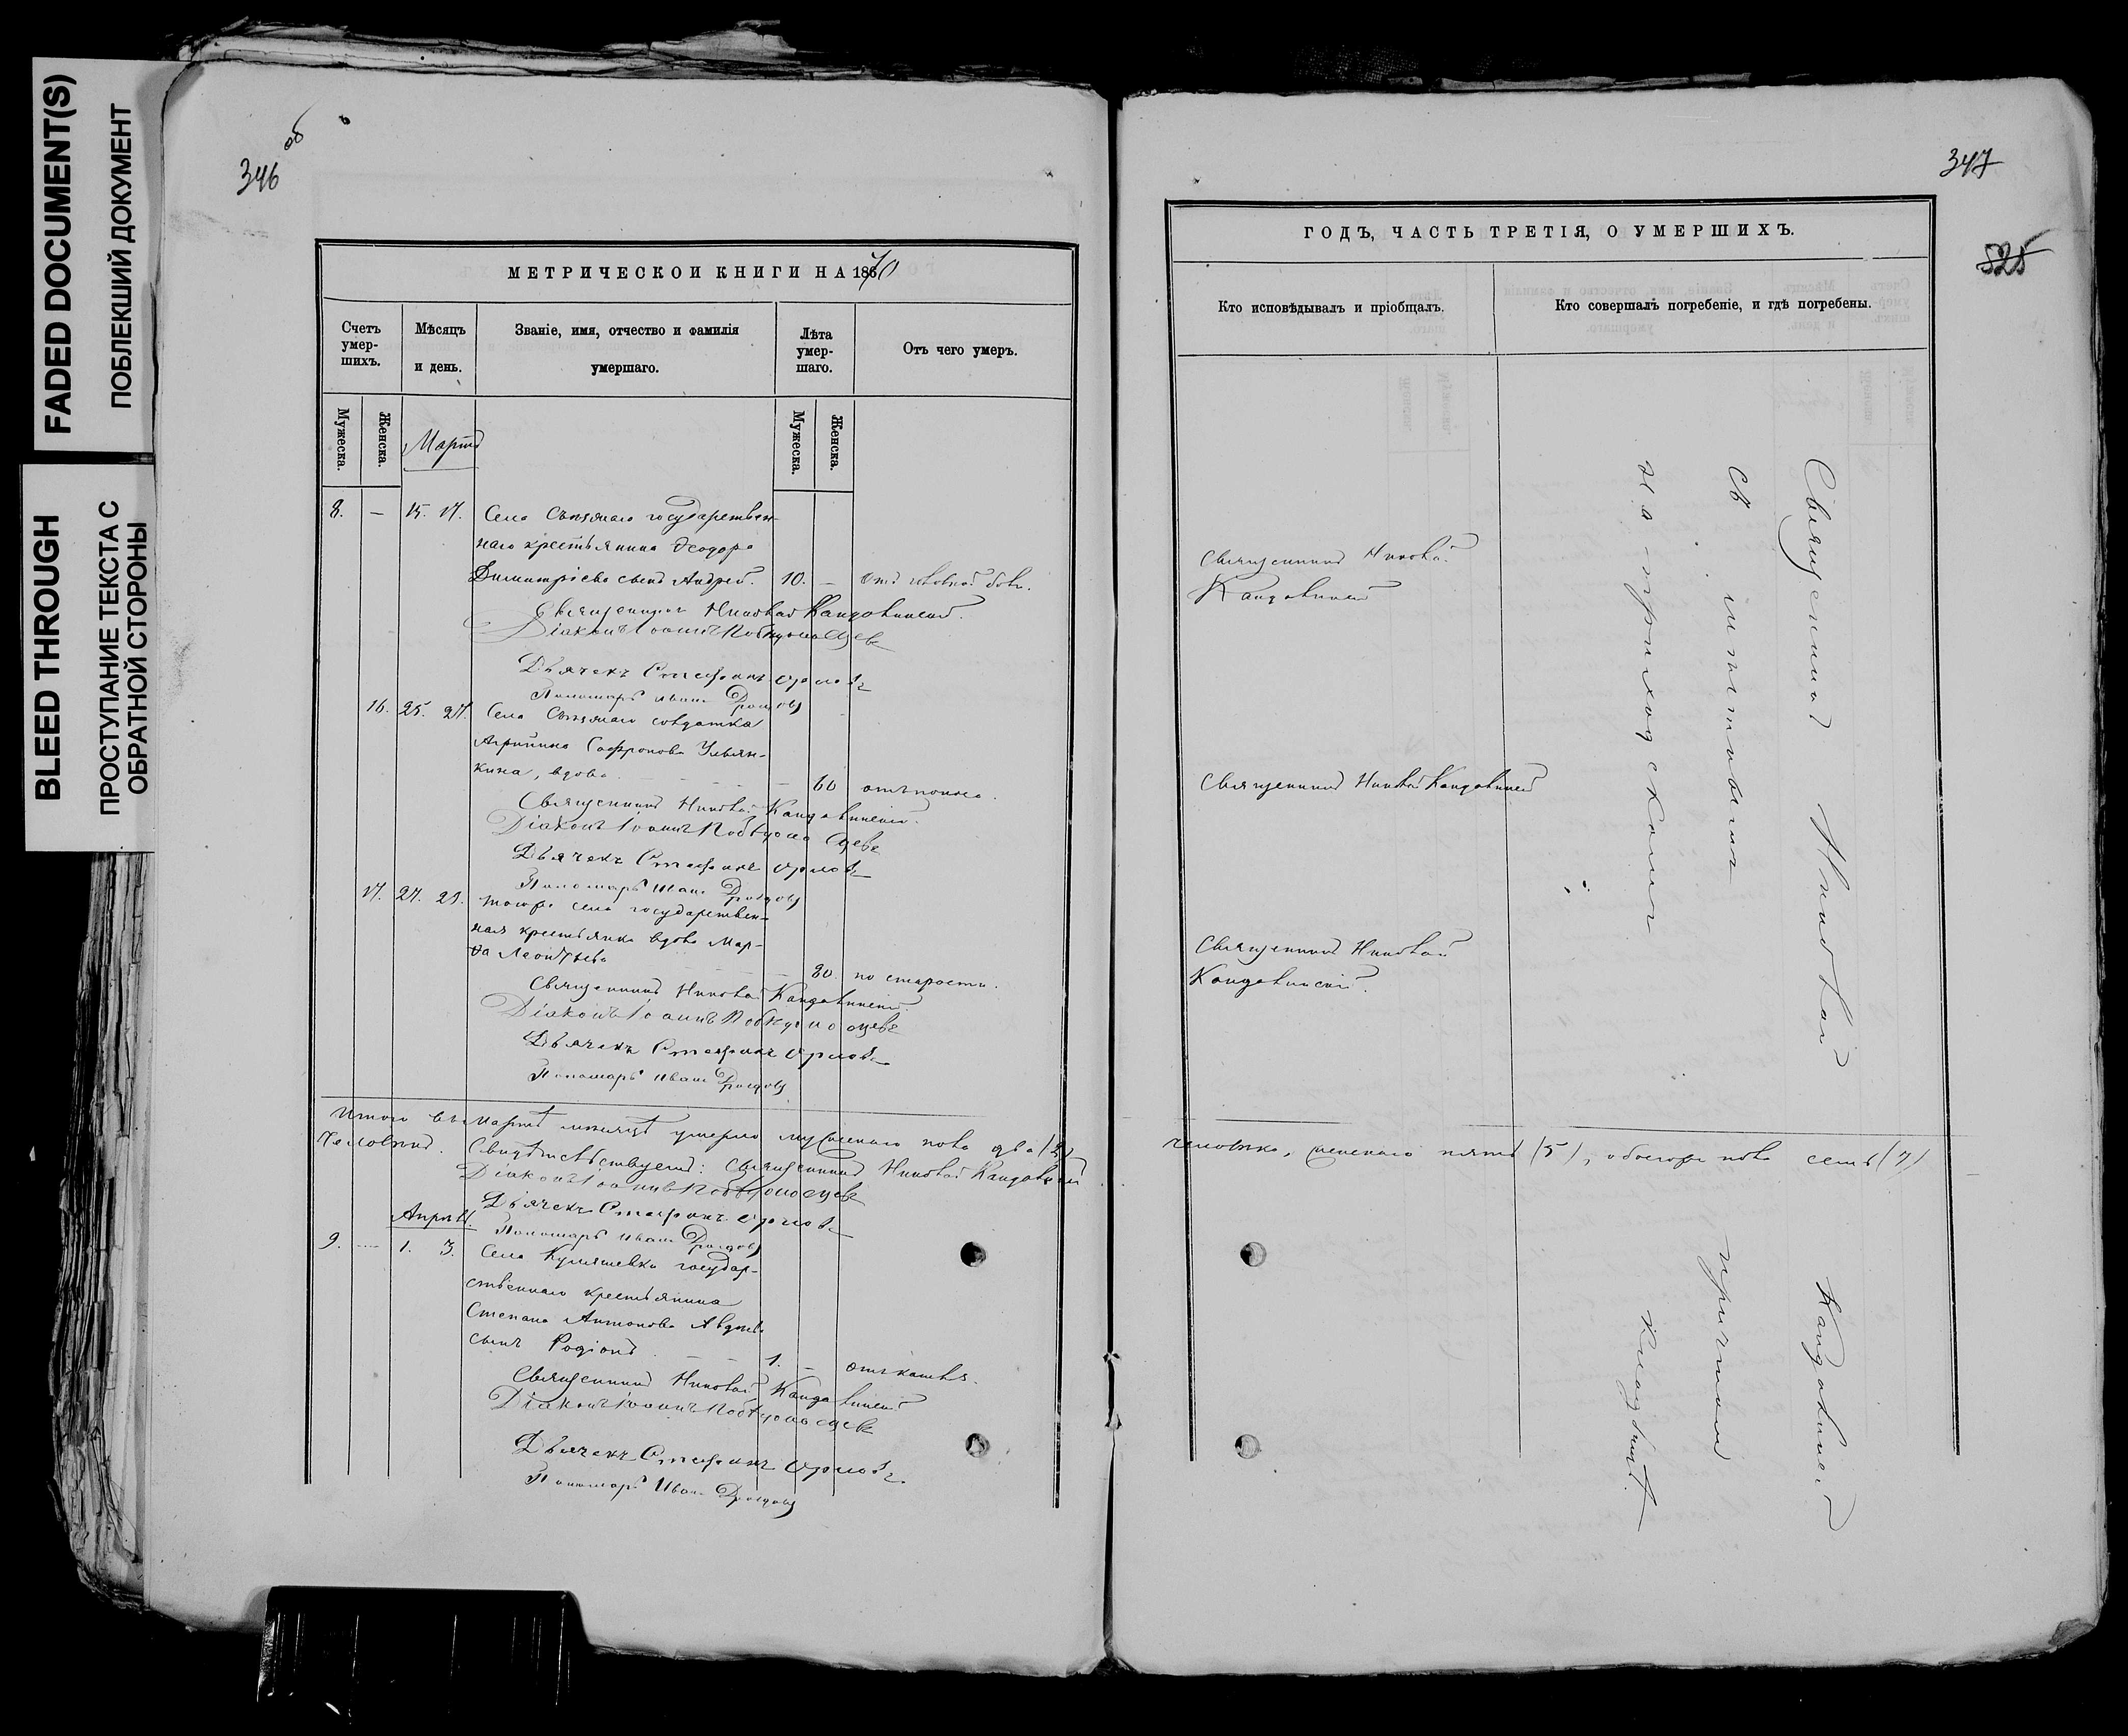 FADED DOCUMENT(S)
ПОБЛЕКШИЙ ДОКУМЕНТ
BLEED THROUGH
ПРОСТУПАНИЕ ТЕКСТА С
ОБРАТНОЙ СТОРОНЫ
346 об
МЕТРИЧЕСКОЙ КНИГИ НА 1870
Счетъ умер-шихъ.
Мѣсяцъ и день.
Званіе, имя, отчество и фамилія умершаго.
Лѣта умер-шаго.
Отъ чего умеръ.
Мужеска.
Женска.
Мужеска.
Женска.
Мартъ
8. — 15. 17. Села государствен-
наго крестьянина Ѳеодора
Димитріева сынъ Андрей. 10. — отъ головной боли.
Священникъ Николай
Діаконъ Іоаннъ Побѣдоносцевъ
Дьячекъ Стефанъ Орловъ
Пономарь Иванъ Дроздовъ
16. 25. 27. Села солдатка
Агрипина Софронова Ульян-
кина, вдова. 60
Священникъ Николай
Діаконъ Іоаннъ Побѣдоносцевъ
Дьячекъ Стефанъ Орловъ
Пономарь Иванъ Дроздовъ
17. 27. 29. тогоже села государствен-
ная крестьянка вдова Мар-
ѳа Леонтьева 80. по старости.
Священникъ Николай
Діаконъ Іоаннъ Побѣдоносцевъ
Дьячекъ Стефанъ Орловъ
Пономарь Иванъ Дроздовъ
Итого въ Мартѣ мѣсяцѣ умерло мужескаго пола два (2)
человѣка. Свидѣтельствуемъ: Священникъ Николай
Діаконъ Іоаннъ Побѣдоносцевъ
Дьячекъ Стефанъ Орловъ
Апрѣль.
Пономарь Иванъ Дроздовъ
9. — 1. 3. Села государ-
ственнаго крестьянина
Степана Антонова
сынъ Родіонъ 1. — отъ кашля.
Священникъ Николай
Діаконъ Іоаннъ Побѣдоносцевъ
Дьячекъ Стефанъ Орловъ.
Пономарь Иванъ Дроздовъ
347
525
ГОДЪ, ЧАСТЬ ТРЕТІЯ, О УМЕРШИХЪ.
Кто исповѣдывалъ и пріобщалъ.
Кто совершалъ погребеніе, и гдѣ погребены.
Священникъ Николай
Священникъ Николай
Священникъ Николай
Священникъ Николай
съ причтомъ
на приходскомъ кладбищѣ.
человѣка, женскаго пять (5), обоего пола семь (7)